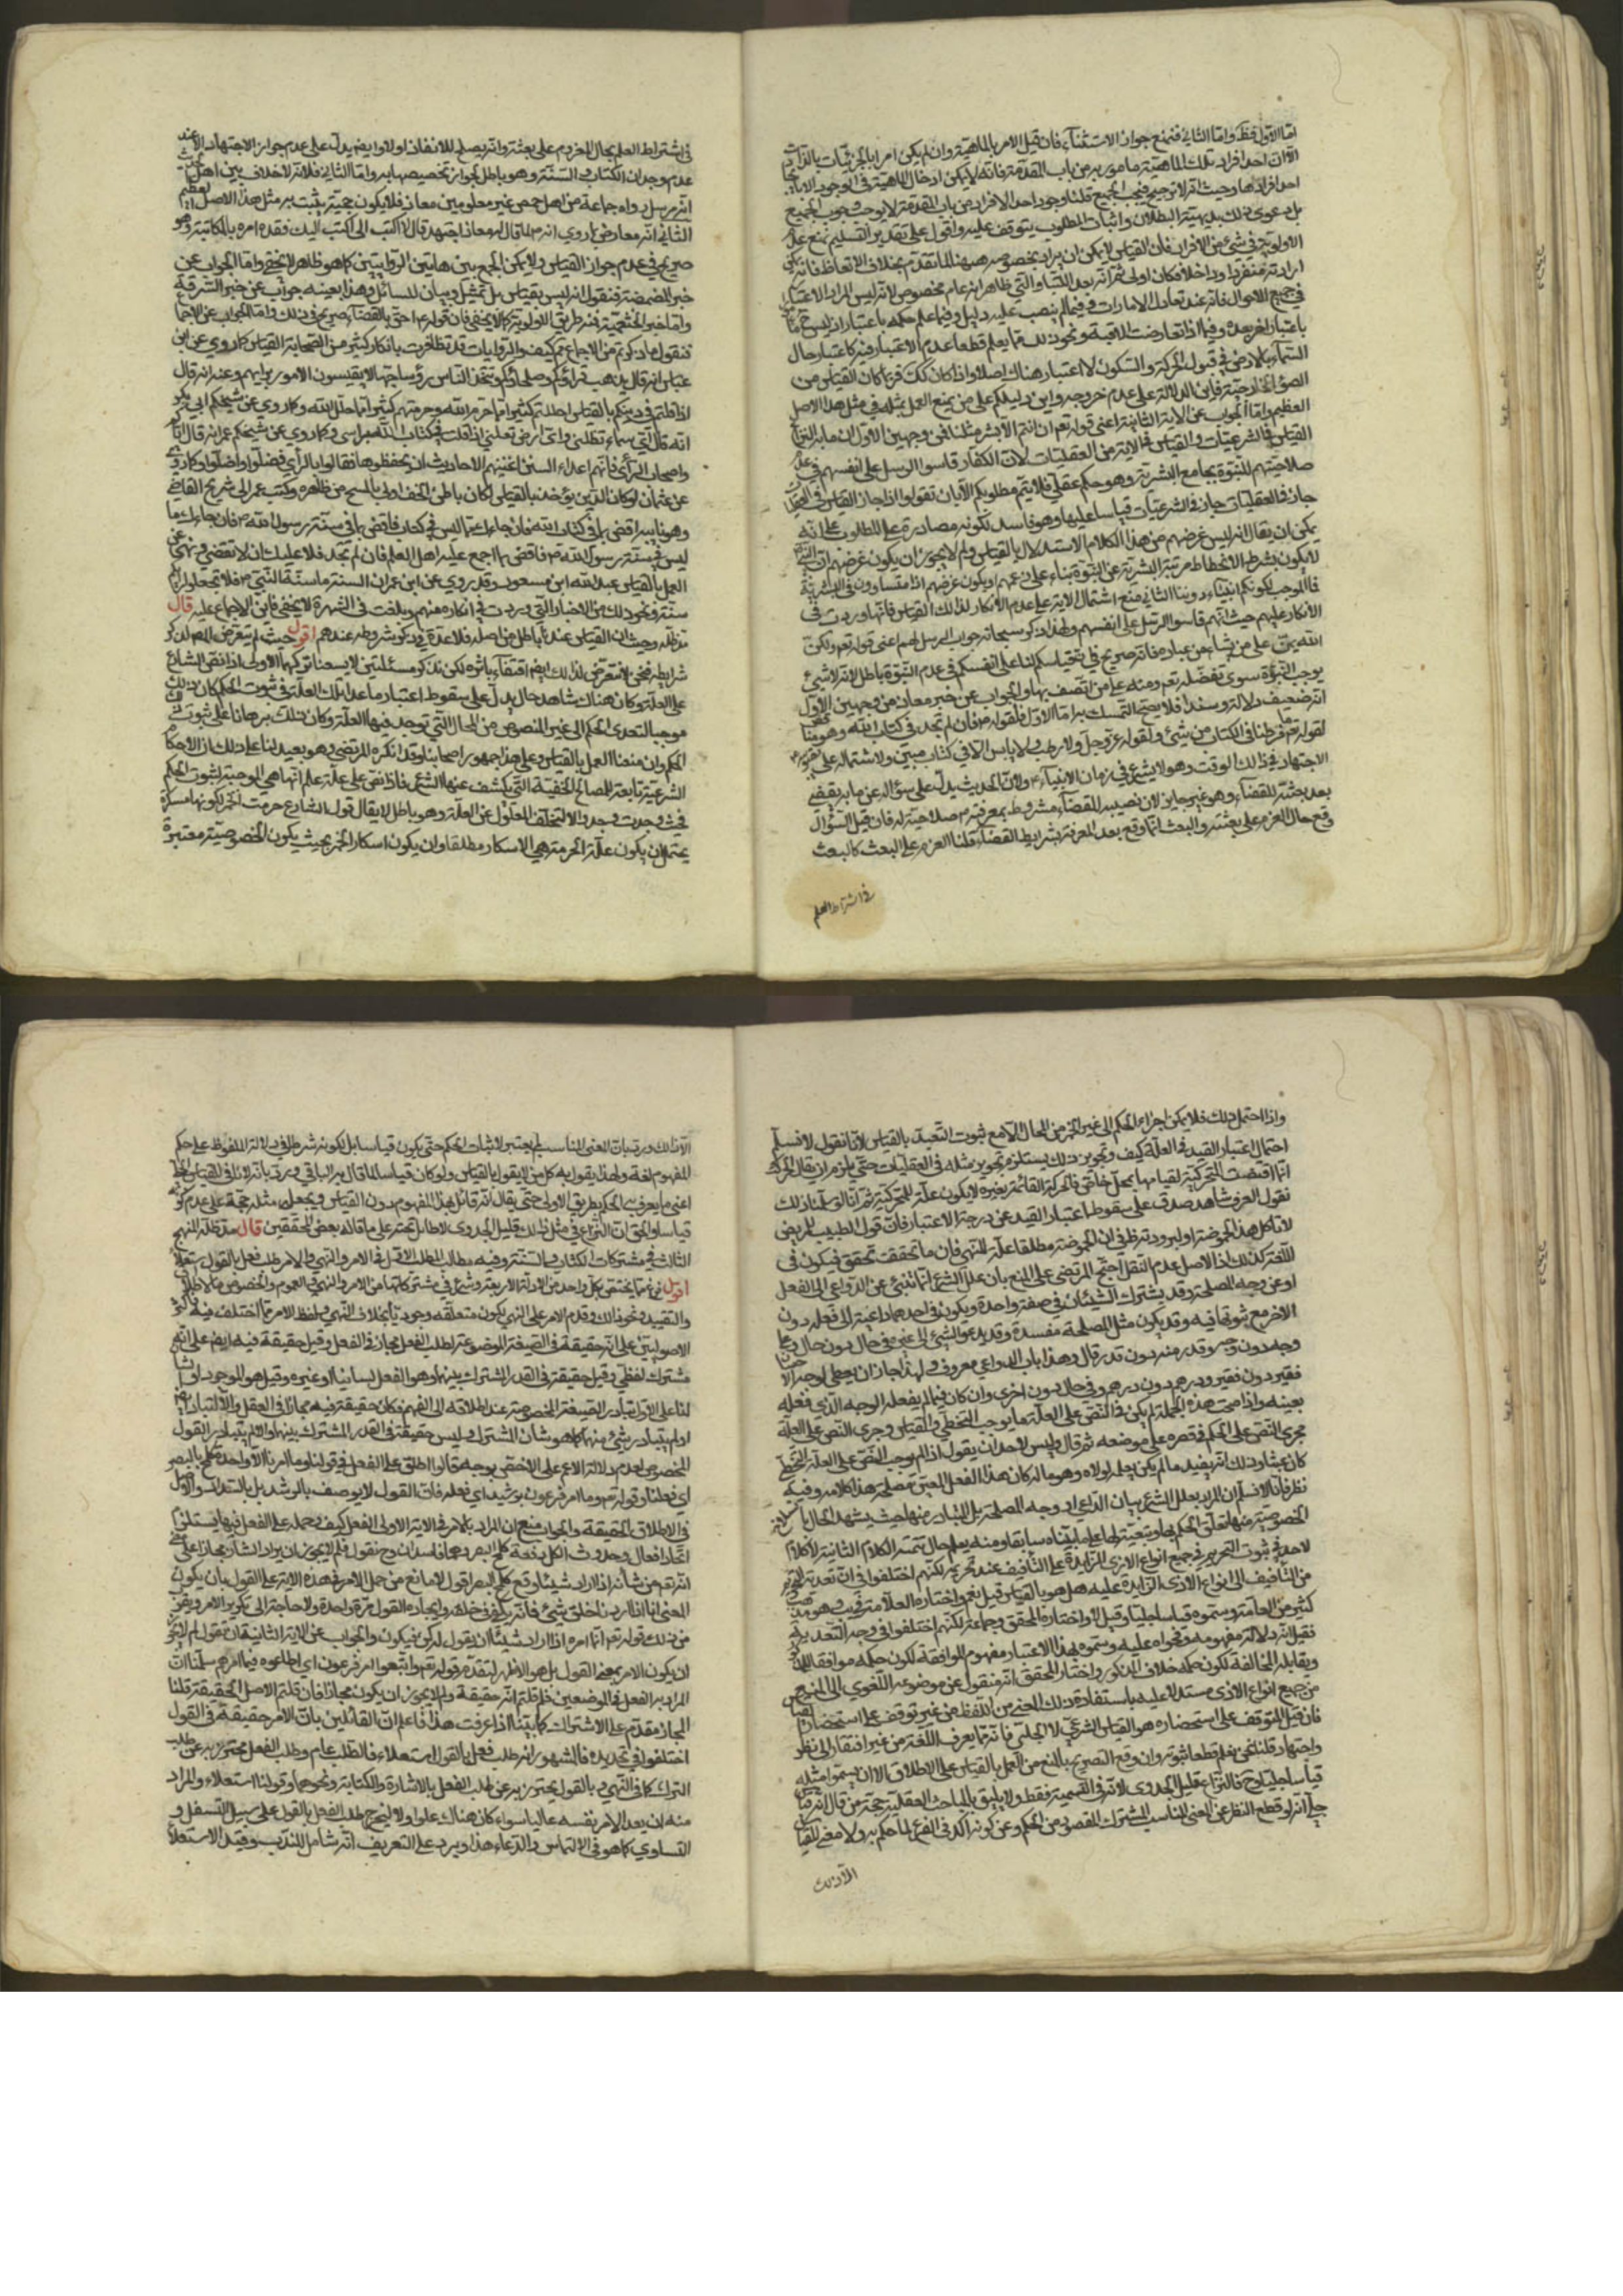 اما الاول فظ واما الثاني فنمنع جواز الاستثناء فان قيل الامر بالماهية وان لم يكن امرا بالجزئيات بالذات
الا ان احد افراد تلك الماهية مامور به من باب المقدمة فانه لا يمكن ادخال الماهية في الوجود الا
احد افرادها وحيث انه لا ترجيح فيجب الجميع قلنا وجود احد الافراد من باب المقدمة لا يوجب وجوب الجميع
بل دعوى ذلك بديهية البطلان واثبات المطلوب يتوقف عليه واقول على تقدير التسليم نمنع
الاولوية في شيء من الافراد فان القياس لا يمكن ان يراد بخصوصه ههنا لما تقدم بخلاف الاتعاظ فانه
ارادته منفردا وداخلا فكان اولى ثم انه بعد اللتيا والتي ظاهر انه عام مخصوص لانه ليس المراد الاعتبار
في جميع الاحوال فانه عند تعادل الامارات وفيما لم ينصب عليه دليل وفيما علم حكمه باعتبار
باعتبار اخر بعده وفيما اذا تعارضت الاقيسة ونحو ذلك مما يعلم قطعا عدم الاعتبار فيه كاعتبار حال
السماء بالارض في قبول الحركة والسكون لا اعتبار هناك اصلا واذا كان كك فربما كان القياس من
الصور الخارجة فاين الدلالة على عدم خروجه واين دليلكم على من يمنع العمل بمثله في مثل هذا الاصل
العظيم واما الجواب عن الاية الثانية اعني قوله تعم ان انتم الا بشر مثلنا فمن وجهين الاول ان ما به النزاع
القياس في الشرعيات والقياس في الاية من العقليات لان الكفار قاسوا الرسل على انفسهم في
صلاحيتهم للنبوة بجامع البشرية وهو حكم عقلي فلا يتم مطلوبكم الا بان تقولوا اذا جاز القياس في
جاز في العقليات جاز في الشرعيات قياسا عليها وهو فاسد لكونه مصادرة على المطلوب على انه
يمكن ان يقال انه ليس غرضهم من هذا الكلام الاستدلال بالقياس ولم لا يجوز ان يكون غرضهم ان
لا يكون بشرط الانحطاط مرتبة البشرية عن النبوة بناء على زعمهم او يكون غرضهم اذا متساوون في البشرية
فما الموجب لكونكم انبياء دوننا الثاني منع اشتمال الاية على عدم الانكار لذلك القياس فانها وردت في
الانكار عليهم حيث انهم قاسوا الرسل على انفسهم ولهذا ذكر سبحانه جواب الرسل لهم اعني قوله تعم ولكن
الله يمن على من يشاء من عباده فانه صريح في ان قياسكم لنا على انفسكم في عدم النبوة باطل لانه لا شيء
يوجب النبوة سوى تفضله تعم ومنه على من اتصف بها والجواب عن خبر معاذ من وجهين الاول
انه ضعيف دلالة وسندا فلا يصح التمسك به اما الاول فلقوله فان لم تجد في كتاب الله وهو مناف
لقوله تعم ما فرطنا في الكتاب من شيء ولقوله عز وجل ولا رطب ولا يابس الا في كتاب مبين ولاشتماله على تقرير
الاجتهاد في ذلك الوقت وهو لا يشرع في زمان الانبياء ولان الحديث يدل على سؤاله عن ما به يقضي
بعد بعثته للقضاء وهو غير جايز لان نصيبه للقضاء مشروط بمعرفته صلاحيته له فان قيل السؤال
وقع حال العزم على بعثته والبعث انما وقع بعد المعرفة بشرايط القضاء قلنا العزم على البعث كالبعث
في اشتراط العلم
في اشتراط العلم بحال المعزوم على بعثه وانه يصلح للانفاذ اولا وايضا يدل على عدم جواز الاجتهاد الا عند
عدم وجدان الكتاب والسنة وهو باطل لجواز تخصيصهما به واما الثاني فلانه لا خلاف بين اهل
انه مرسل رواه جماعة من اهل حمص غير معلومين معاذ فلا يكون حجية يثبت به مثل هذا الاصل العظيم
الثاني انه معارض بما روي انه لما قال له معاذ اجتهد قال لا اكتب الي اكتب اليك فقده امره بالمكاتبة وهو
صريح في عدم جواز القياس ولا يمكن الجمع بين هاتين الروايتين كما هو ظاهر لا يخفى واما الجواب عن
خبر المضمضة فنقول انه ليس بقياس بل تمثيل وبيان للسائل وهذا بعينه جواب عن خبر السرقة
واما خبر الخثعمية فمن طريق الاولوية كما لا يخفى فان قوله احق بالقضاء صريح في ذلك واما الجواب عن
فنقول ما ذكرتم من الاجماع مم كيف والروايات قد تظافرت بانكار كثير من الصحابة القياس كما روي عن ابن
عباس انه قال يذهب قراؤكم وصلحاؤكم ويتخذ الناس رؤساء جهالا يقيسون الامور برايهم وعنه انه قال
اذا قلتم في دينكم بالقياس احللتم كثيرا مما حرم الله وحرمتم كثيرا مما حلل الله وكما روي عن شيخكم ابي بكر
انه قال اي سماء تظلني واي ارض تقلني اذا قلت في كتاب الله براي وكما روي عن شيخكم عمر انه قال
واصحاب الراي فانهم اعداء السنن اعيتهم الاحاديث ان يحفظوها فقالوا بالراي فضلوا واضلوا وكما روي
عن عثمان لو كان الدين يؤخذ بالقياس لكان باطن الخف اولى بالمسح من ظاهره وكتب عمر الى شريح القاضي
وهو نايبه اقض بما في كتاب الله فان جاءك ما ليس في كتاب فاقض بما في سنة رسول الله فان جاءك ما
ليس في سنة رسول الله فاقض بما اجمع عليه اهل العلم فان لم تجد فلا عليك ان لا تقضي ونهى عن
العمل بالقياس عبد الله ابن مسعود وقد روي عن ابن عمر ان السنة ما سنة النبي فلا تجعلوا رايكم
سنة ونحو ذلك من الاخبار التي وردت في انكاره منهم وبلغت في الشهرة لا يخفى فاين الاجماع عليه قال
وحيث ان القياس عندنا باطل من اصله فلا فائدة في ذكر شروطه عندهم اقول حيث لم يتعرض المصه لذكر
شرايطه فنحن لا نتعرض لذلك ايضا اقتفاء باثره لكن نذكر مسئلتين لا يسعنا تركهما الاولى اذا نص الشارع
على العلة وكان هناك شاهد حال يدل على سقوط اعتبار ما عدا تلك العلة في ثبوت الحكم كان ذلك
موجبا لتعدي الحكم الى غير المنصوص من المحال التي توجد فيها العلة وكان ذلك برهانا على ثبوت
الحكم وان منعنا العمل بالقياس وعلى هذا جمهور اصحابنا وقد انكره المرتضى وهو بعيد لنا على ذلك ان الاحكام
الشرعية تابعة للمصالح الخفية التي يكشف عنها الشرع فاذا نص على علة علم انها هي الموجبة لثبوت الحكم
فحيث وجدت وجد والا لتخلف المعلول عن العلة وهو باطل لا يقال قول الشارع حرمت الخمر لكونها مسكرة
يحتمل ان يكون علة الحرمة هي الاسكار مطلقا وان يكون اسكار الخمر بحيث يكون الخصوصية معتبرة
واذا احتمل ذلك فلا يمكن اجراء الحكم الى غير الخمر من المحال الا مع ثبوت التعبد بالقياس لانا نقول لا نسلم
احتمال اعتبار القيد في العلة كيف وتجويز ذلك يستلزم تجويز مثله في العقليات حتى يلزم ان يقال الحركة
انما اقتضت المتحركية لقيامها بمحل خاص فالحركة القائمة بغيره لا يكون علة للمتحركية ثم انا لو سلمنا ذلك
نقول العرف شاهد صدق على سقوط اعتبار القيد عن درجة الاعتبار فان قول الطبيب للمريض
لا تاكل هذا لحموضته او لبرودته ظ في ان الحموضة مطلقا علة للنهي فان ما تحققت تحقق فيكون في
اللغة كذلك اذ الاصل عدم النقل احتج المرتضى على المنع بان علل الشرع انما تنبئ عن الدواعي الى الفعل
او عن وجه المصلحة وقد يشترك الشيئان في صفة واحدة ويكون في احدهما داعية الى فعله دون
الاخر مع ثبوتها فيه وقد يكون مثل المصلحة مفسدة وقد يدعو الشيء الى غيره في حال دون حال وعلى
وجه دون وجه وقدر منه دون قدر قال وهذا باب الدواعي معروف ولهذا جاز ان يعطى لوجه الاحسان
فقير دون فقير ودرهم دون درهم وفي حال دون اخرى وان كان فيما لم يفعله الوجه الذي فعله
بعينه واذا صحت هذه الجملة لم يكن في النص على العلة ما يوجب التخطي والقياس وجرى النص على العلة
مجرى النص على الحكم في قصره على موضعه ثم قال وليس لاحد ان يقول اذا لم يوجب النص على العلة التخطي
كان عبثا وذلك انه يفيد ما لم يكن يعلم لولاه وهو ما له كان هذا الفعل المعين مصلحة هذا كلامه وفيه
نظر فانا لا نسلم ان المراد بعلل الشرع بيان الداعي او وجه المصلحة بل المتبادر منها حيث يشهد الحال
الخصوصية منها تعلق الحكم بها وتبعيته لها على ما بيناه سابقا ومنه يعلم حال تتمة الكلام الثانية لا كلام
لاحد في ثبوت التحريم في جميع انواع الاذى الزايدة على التافيف عند تحريمه لكنهم اختلفوا في ان تعدية التحريم
من التافيف الى انواع الاذى الزايدة عليه هل هو بالقياس قيل نعم واختاره العلامة في وهو مذهب
كثير من العامة وسموه قياسا جليا وقيل لا واختاره المحقق وجماعة لكنهم اختلفوا في وجه التعدية
فقيل انه دلالة مفهومه وفحواه عليه وسموه بهذا الاعتبار مفهوم الموافقة لكون حكمه موافقا للمذكور
ويقابله المخالفة لكون حكمه خلاف المذكور واختار المحقق انه منقول عن موضوعه اللغوي الى المنع
من جميع انواع الاذى مستدلا عليه باستفادة ذلك المعنى من اللفظ من غير توقف على استحضار القياس
فان قيل المتوقف على استحضاره هو القياس الشرعي لا الجلي فانه مما يعرف اللغة من غير افتقار الى نظر
واجتهاد قلنا نحن نعلم قطعا ثبوته وان وقع التصريح بالمنع من العمل بالقياس على الاطلاق الا ان يسموا مثله
قياسا جليا وح فالنزاع قليل الجدوى لانه في التسمية فقط ولا يليق بالمباحث العقلية حجة من قال انه قياس
جلي انه لو قطع النظر عن المعنى المناسب المشترك المقصود من الحكم وعن كونه اكد في الفرع لما حكم به ولا معنى للقياس
الا ذلك
الا ذلك ورد بان المعنى المناسب لم يعتبر لاثبات الحكم حتى يكون قياسا بل لكونه شرطا في دلالة الملفوظ على حكم
المفهوم لغة ولهذا يقول به كل من لا يقول بالقياس ولو كان قياسا لما قال به الباقي ورد بانه لا نافي للقياس الجلي
اعني ما يعرف الحكم بطريق الاولى حتى يقال انه قائل بهذا المفهوم دون القياس ويجعل مثله حجة على عدم كونه
قياسا والحق ان النزاع في مثل ذلك قليل الجدوى لا طائل تحته على ما قاله بعض المحققين قال المنهج
الثالث في مشتركات الكتاب والسنة وفيه مطالب المطلب الاول في الامر والنهي والامر طلب فعل بالقول استعلاء
اقول فرغ مما يختص بكل واحد من الادلة الاربعة وشرع في مشتركاتها من الامر والنهي والعموم والخصوص والاطلاق
والتقييد ونحو ذلك وقدم الامر على النهي لكون متعلقه وجوديا بخلاف النهي ولفظ الامر مما اختلف فيه فاكثر
الاصوليين على انه حقيقة في الصيغة الموضوعة لطلب الفعل مجاز في الفعل وقيل حقيقة فيه ايضا على انه
مشترك لفظي وقيل حقيقة في القدر المشترك بينهما وهو الفعل لسانيا او غيره وقيل هو الموجود
لنا على الاول تبادر الصيغة المخصوصة عند اطلاقه الى الفهم فكان حقيقة فيه مجازا في العقل والا لتبادر
او لم يتبادر شيء منهما كما هو شان المشترك وليس حقيقة في القدر المشترك بينهما والا لم يتبادر القول
المخصوص لعدم دلالة الاعم على الاخص بوجه قالوا اطلق على الفعل في قولنا وما امرنا الا واحدة كلمح بالبصر
اي فعلنا وقوله تعم وما امر فرعون برشيد اي فعله فان القول لا يوصف بالرشد بل بالسداد والاصل
في الاطلاق الحقيقة والجواب منع ان المراد بالامر في الاية الاولى الفعل كيف وحمله على الفعل فيها يستلزم
اتحاد افعاله وحدوث الكل دفعة كلمح البصر وهما فاسدان وح نقول فلم لا يجوز ان يراد الشان مجازا على معنى
انه تعم من شانه اذا اراد شيئا وقع كلمح البصر اقول لا مانع من حمل الامر في هذه الاية على القول بان يكون
المعنى انا اذا اردنا خلق شيء فانه يكفي في خلقه وايجاده القول مرة واحدة ولا حاجة الى تكرير الامر ويقرب
من ذلك قوله تعم انما امره اذا اراد شيئا ان يقول له كن فيكون والجواب عن الاية الثانية ان نقول لم لا يجوز
ان يكون الامر بمعنى القول بل هو الاظهر لتقدم قوله تعم واتبعوا امر فرعون اي اطاعوه فيما امرهم سلمنا ان
المراد به الفعل في الموضعين فلم قلتم انه حقيقة ولم لا يجوز ان يكون مجازا فان قلتم الاصل الحقيقة قلنا
المجاز مقدم على الاشتراك كما بينا اذا عرفت هذا فاعلم ان القائلين بان الامر حقيقة في القول
اختلفوا في تحديده فالمشهور انه طلب فعل بالقول استعلاء فالطلب عام وطلب الفعل محترز به عن طلب
الترك كما في النهي وبالقول يحترز به عن طلب الفعل بالاشارة والكتابة ونحوهما وقولنا استعلاء والمراد
منه ان يعد الامر نفسه عاليا سواء كان هناك علو او لا ليخرج طلب الفعل بالقول على سبيل التسفل و
التساوي كما هو في الالتماس والدعاء هذا ويرد على التعريف انه شامل للندب وقيد الاستعلاء